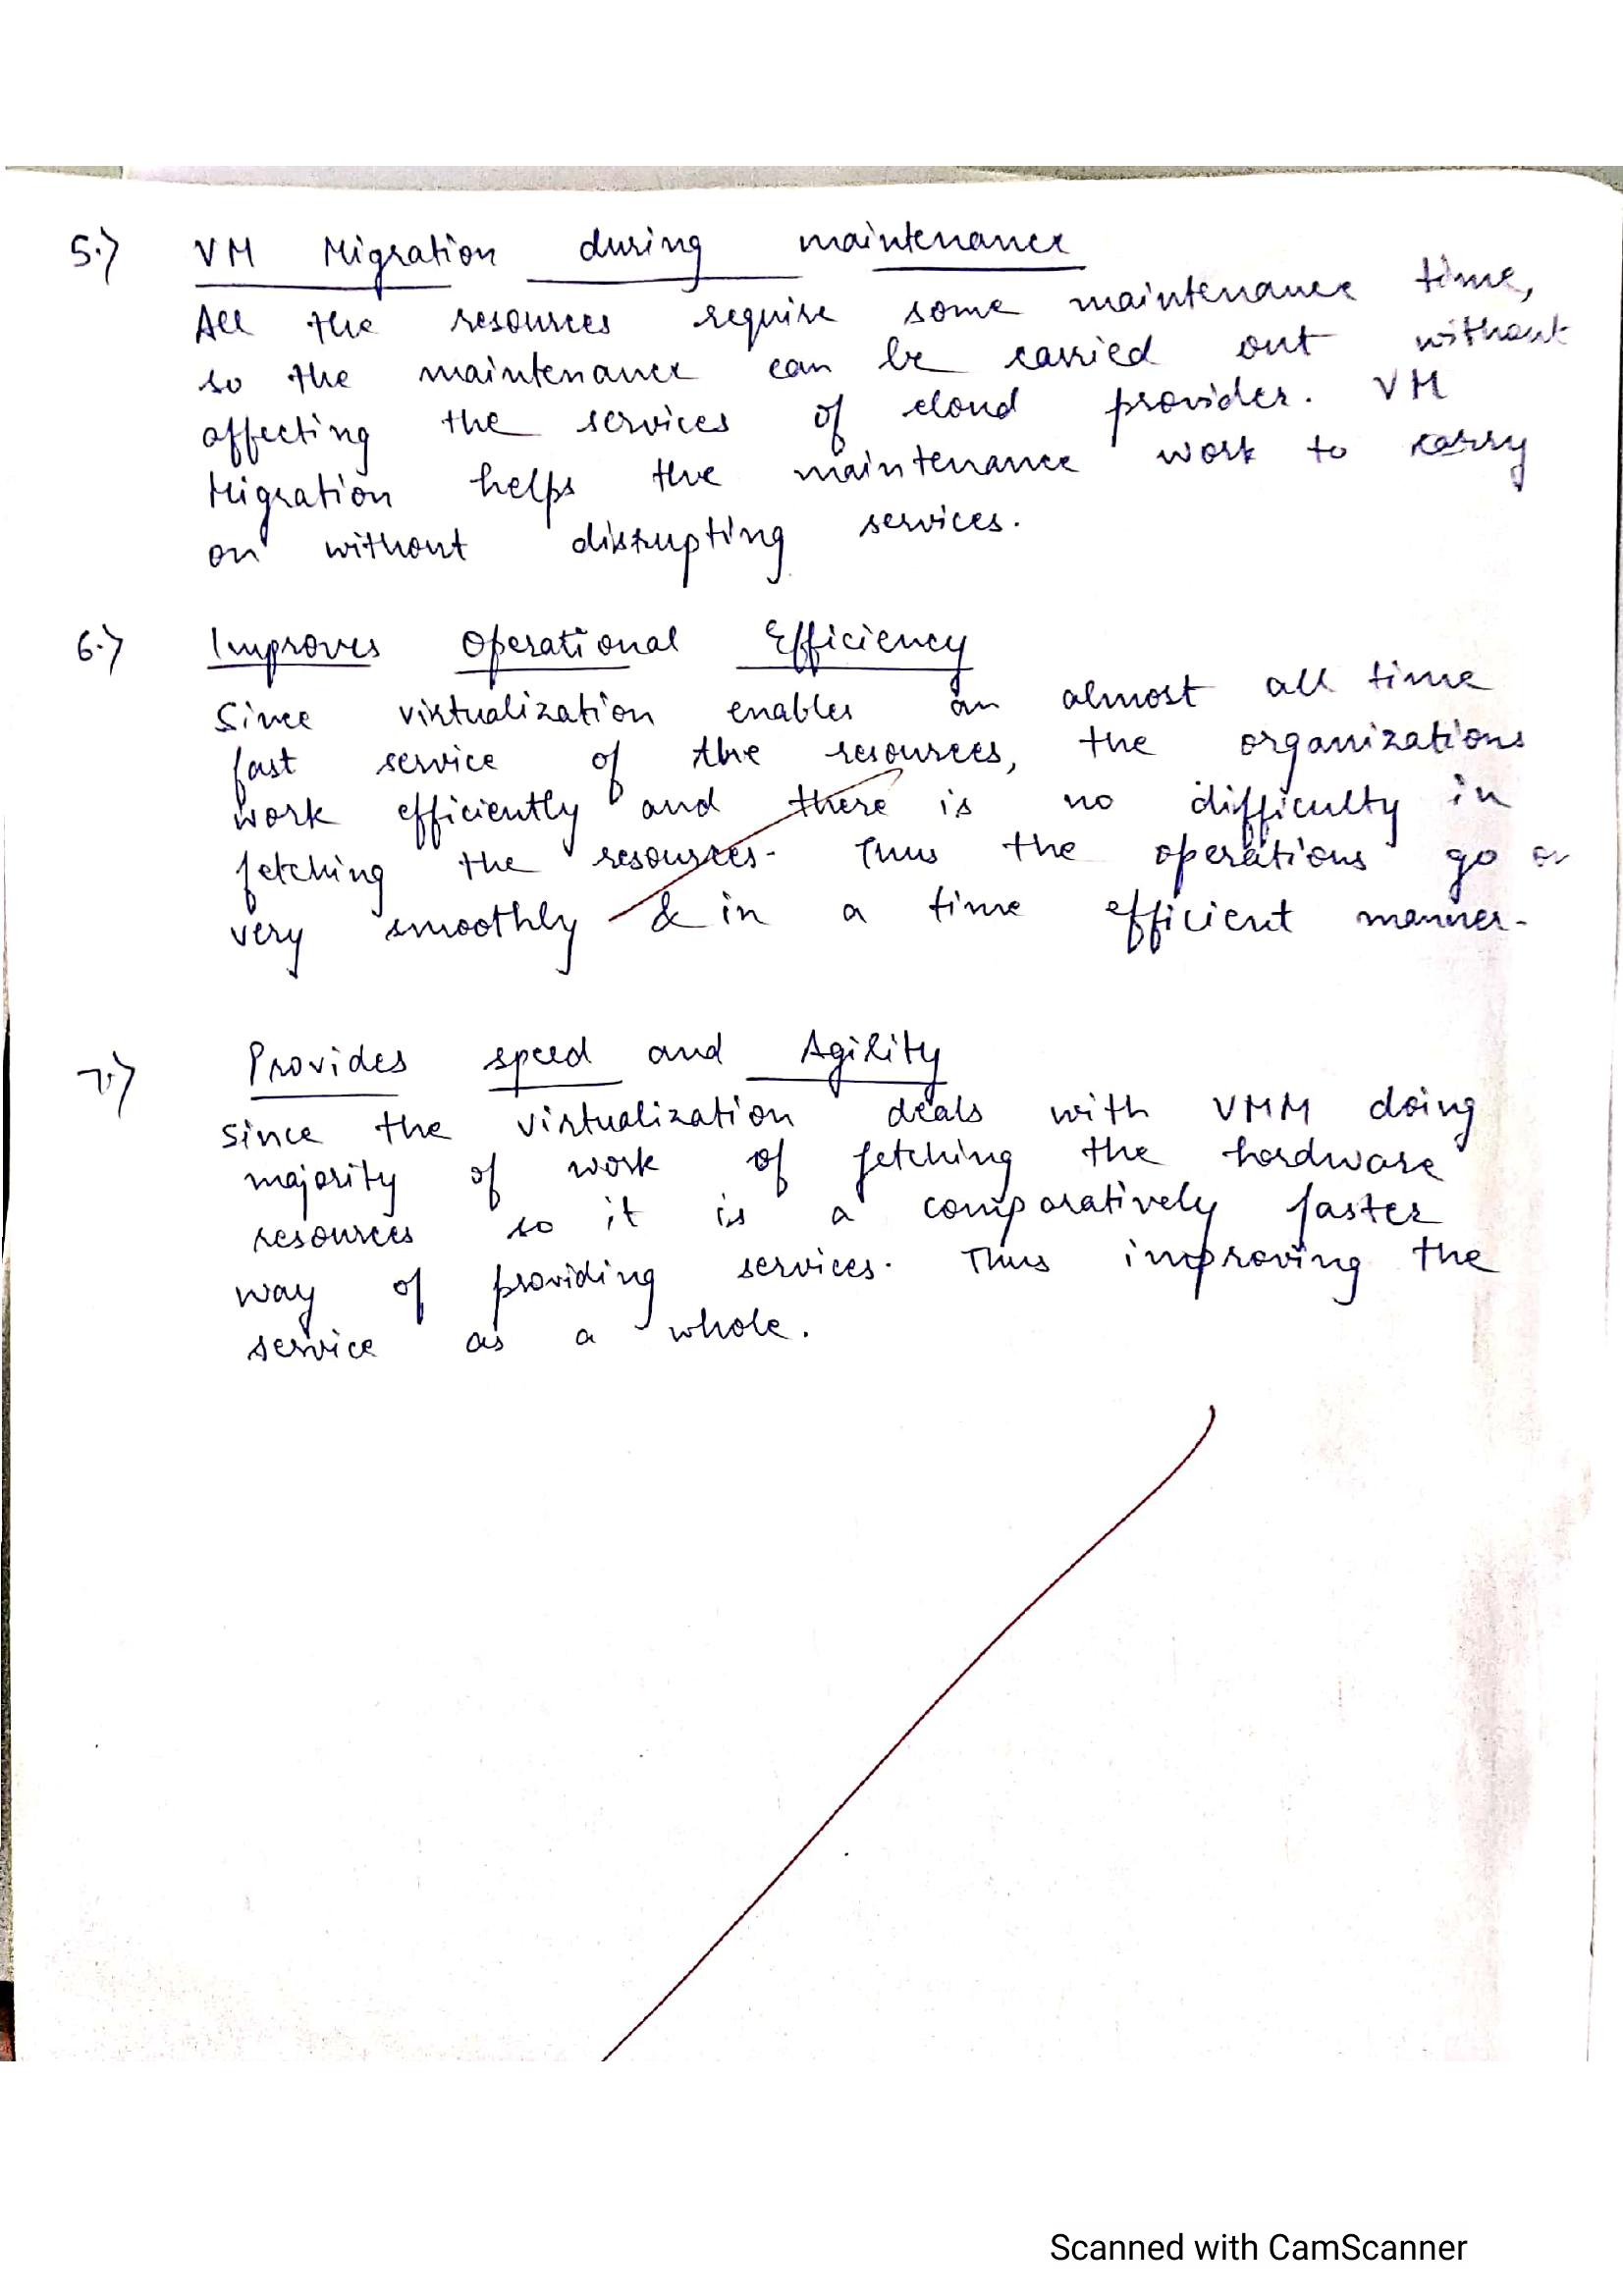 5.) VM Migration during maintenance
All the resources require some maintenance time,
so the maintenance can be carried out without
affecting the services of cloud provider. VM
Migration helps the maintenance work to carry
on without disrupting services.
6.) Improves Operational Efficiency
Since virtualization enables an almost all time
fast service of the resources, the organizations
work efficiently and there is no difficulty in
fetching the resources. Thus the operations go on
very smoothly & in a time efficient manner.
7.) Provides speed and Agility
Since the virtualization deals with VMM doing
majority of work of fetching the hardware
resources so it is a comparatively faster
way of providing services. Thus improving the
service as a whole.
Scanned with CamScanner